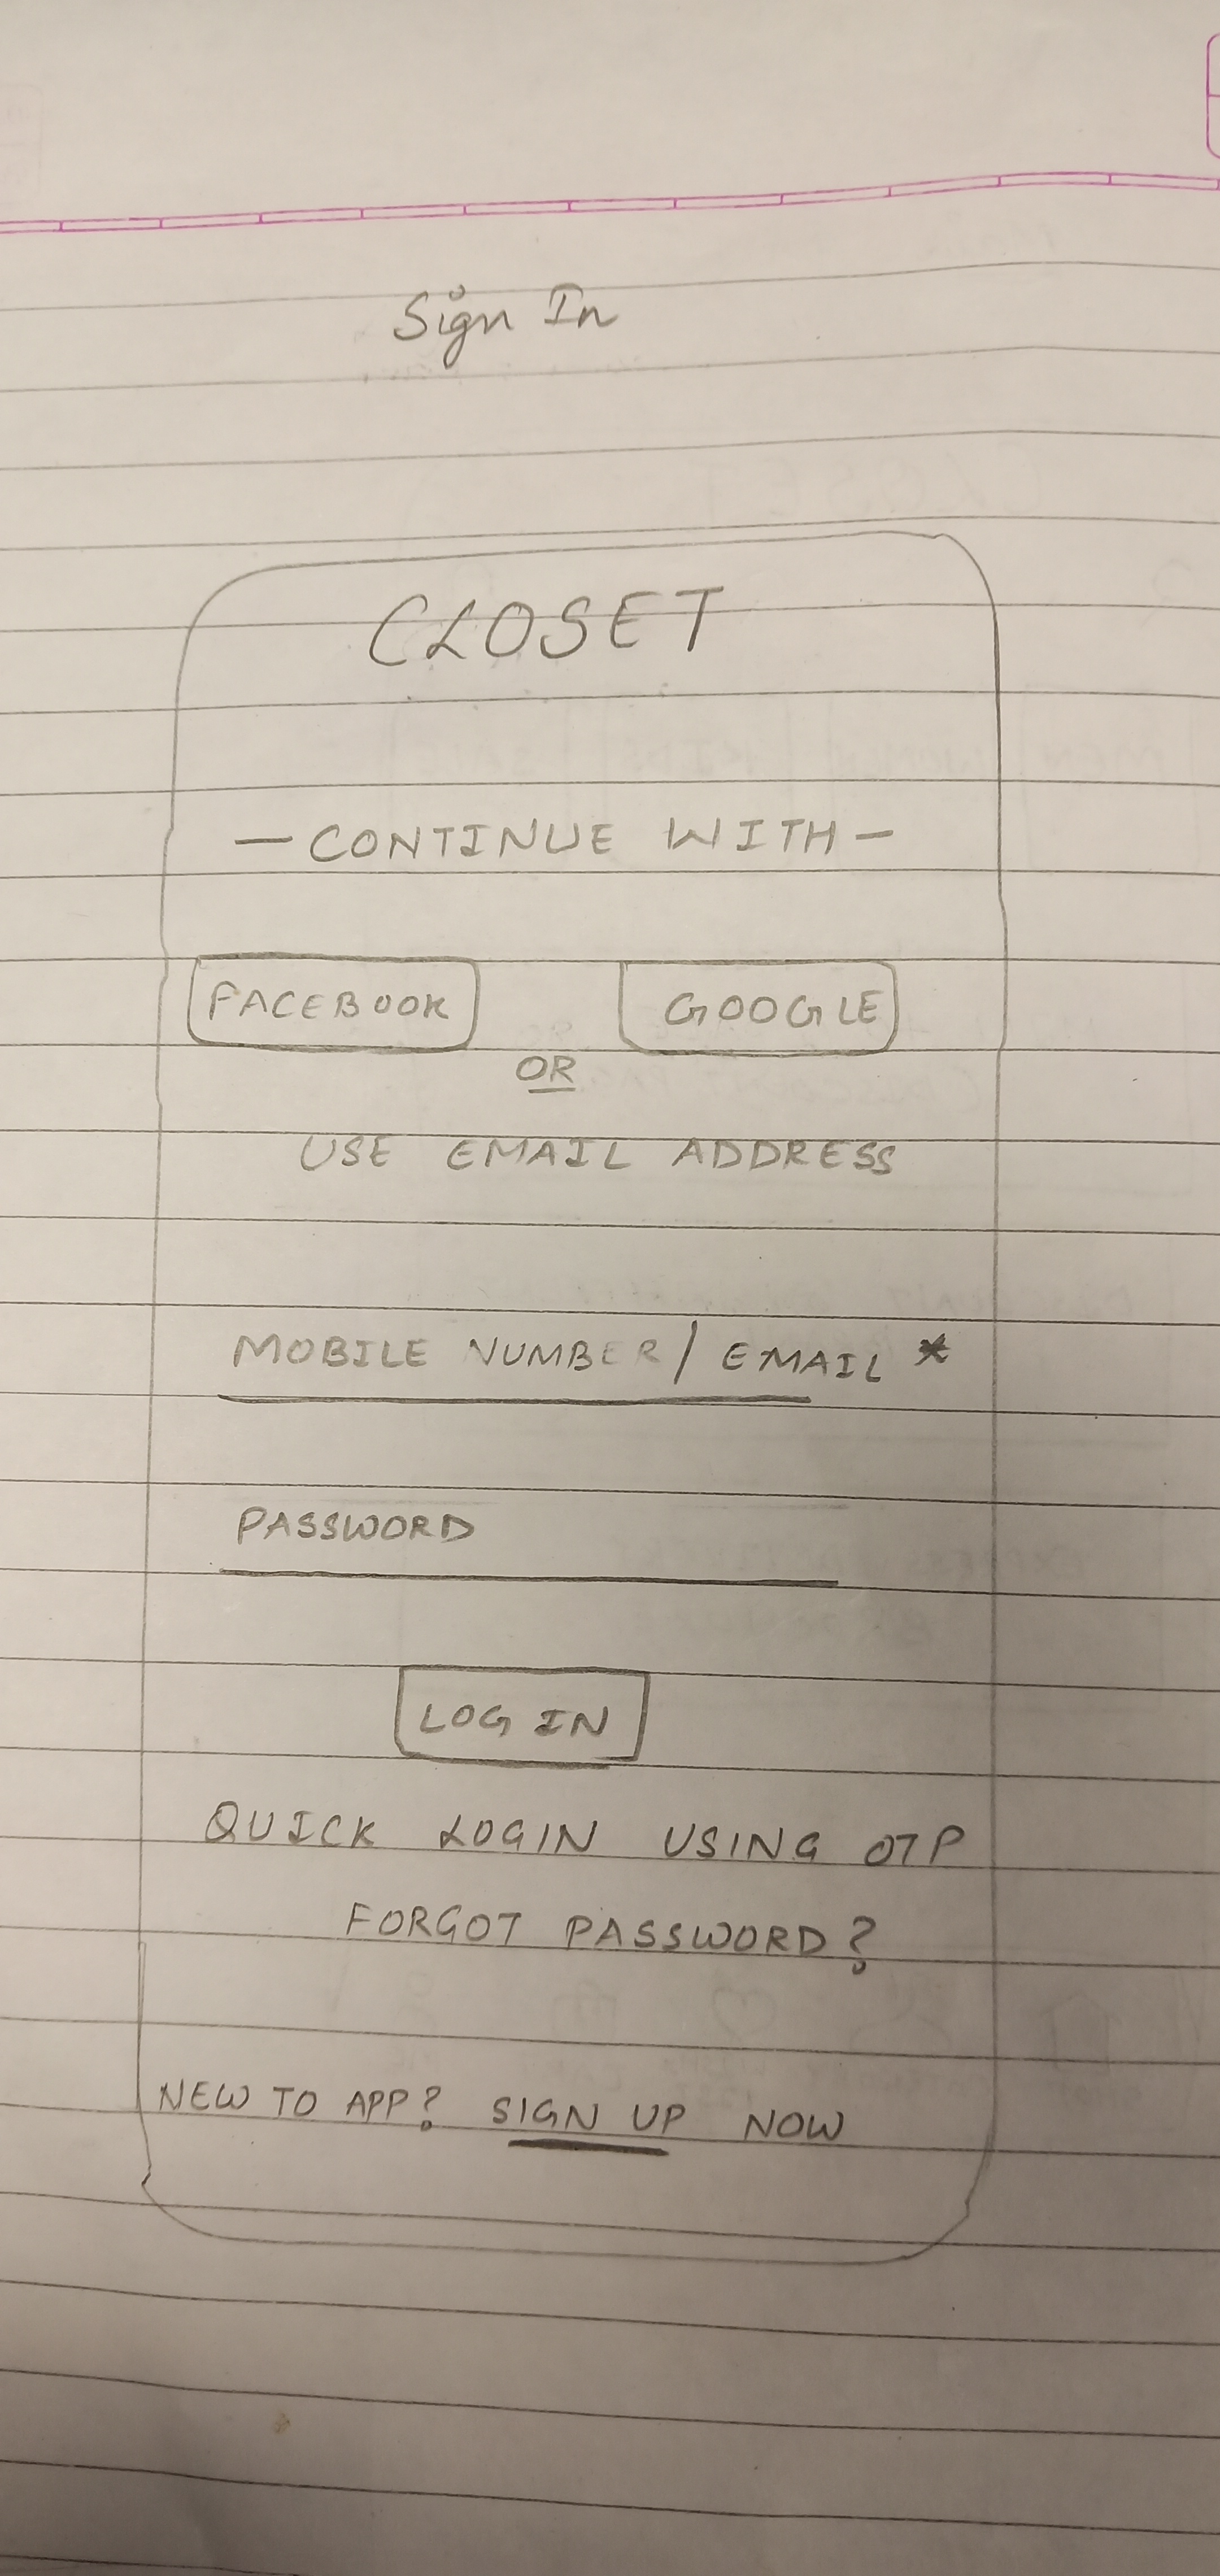 Sign In
CLOSET
— CONTINUE WITH —
FACEBOOK GOOGLE
OR
USE EMAIL ADDRESS
MOBILE NUMBER / EMAIL *
PASSWORD
LOG IN
QUICK LOGIN USING OTP
FORGOT PASSWORD?
NEW TO APP? SIGN UP NOW